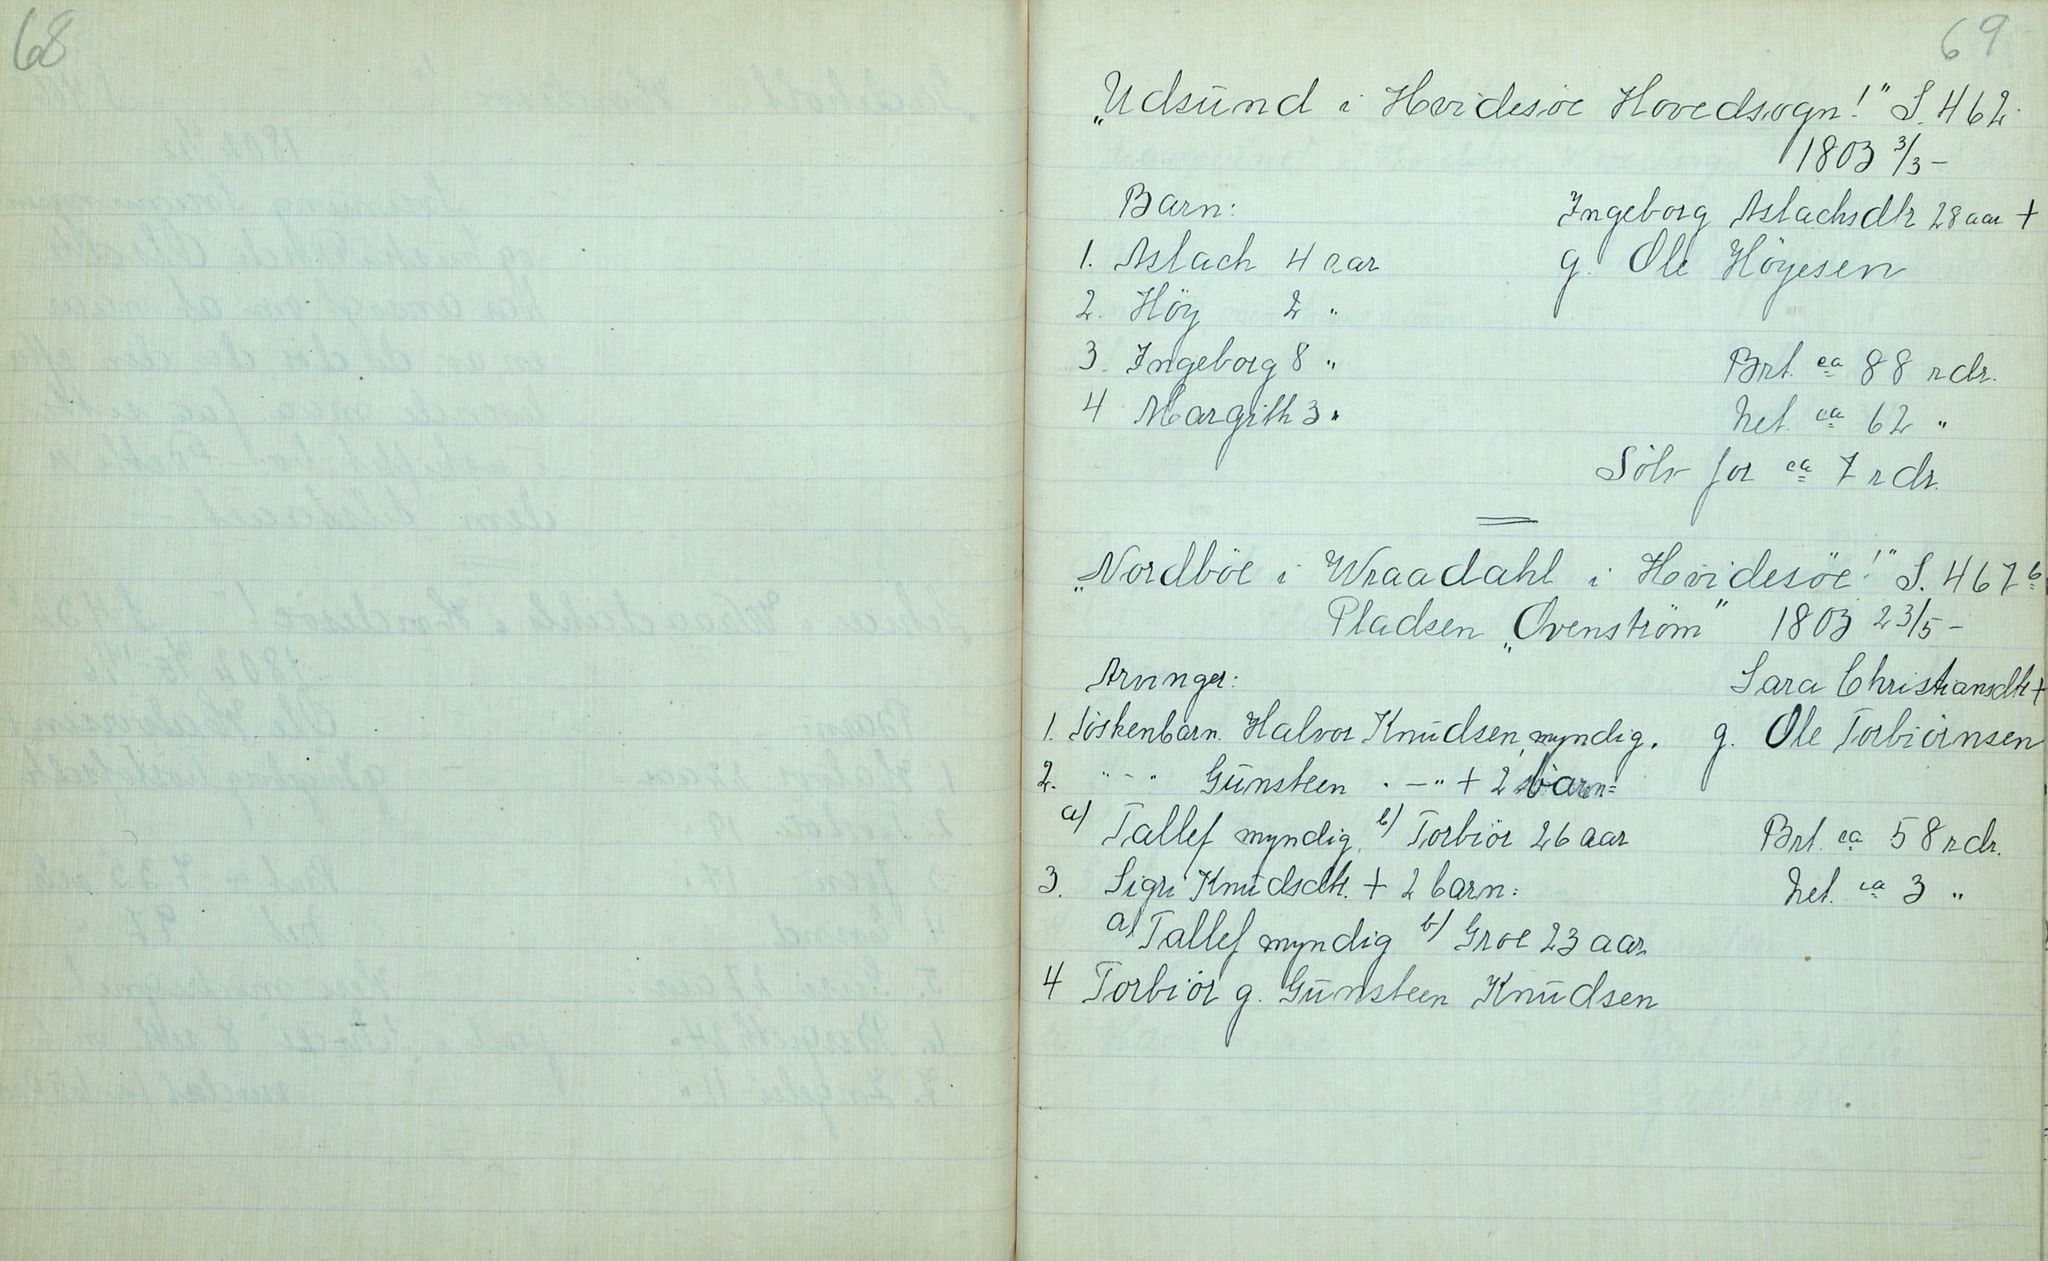 68
69
„Udsund i Hvidesöe Hovedsogn!" S. 462
1803 3/3 –
Barn: Ingeborg Aslachsdtr 28 aar +
1. Aslach 4 aar g. Ole Höyesen
2. Höy 2 "
3. Ingeborg 8 " Brt. ca 88 rdr.
4 Margith 3 " Net. ca 62 "
Sölv for ca 7 rdr.
„Nordböe i Wraadahl i Hvidesöe!" S. 467b
Pladsen „Ovenström" 1803 23/5 –
Arvinger: Sara Christiansdtr +
1. Söskenbarn. Halvor Knudsen, myndig. g. Ole Torbiörnsen
2. " - " Gunsteen " – " + 2 barn:
a) Tallef myndig, b) Torbiör 26 aar Brt. ca 58 rdr.
3. Sigri Knudsdtr. + 2 barn: Net. ca 3 "
a) Tallef myndig b) Groe 23 aar
4 Torbiör g. Gunsteen Knudsen